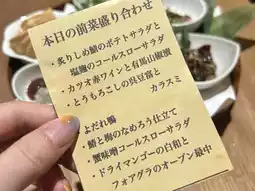 本日の前菜盛り合わせ
・炙りしめ鯖のポテトサラダと
塩麹のコールスローサラダ
・カツオ赤ワインと有馬山椒漬
・とうもろこしの呉豆富と
カラスミ
・よだれ鴨
・鯵と梅のなめろう仕立て
蟹味噌コールスローサラダ
・ドライマンゴーの白和と
フォアグラのオープン最中